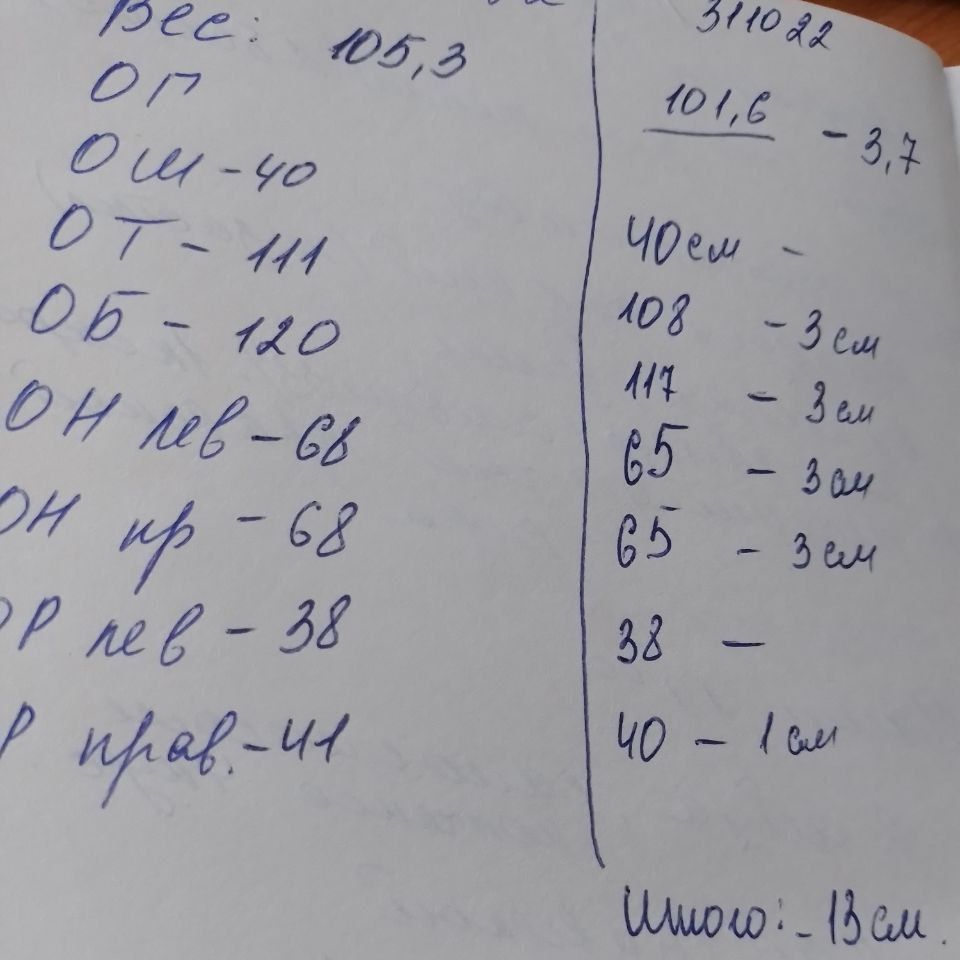 Вес: 105,3
ОГ
ОШ - 40
ОТ - 111
ОБ - 120
ОН лев - 68
ОН пр - 68
ОР лев - 38
Р прав. - 41
311022
101,6 - 3,7
40см -
108 - 3см
117 - 3см
65 - 3см
65 - 3см
38 -
40 - 1см
Итого: - 13см.